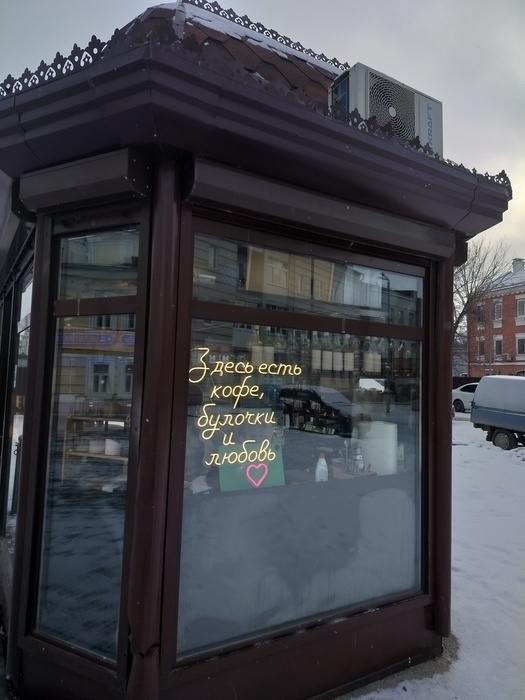 KRAFT
Здесь есть
кофе,
булочки
и
любовь